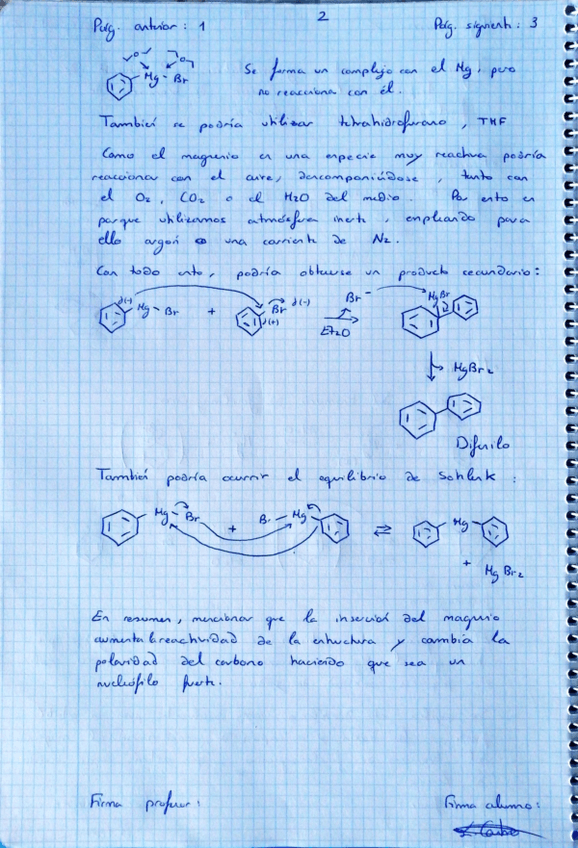 Pág. anterior: 1
2
Pág. siguiente: 3
O O
Mg - Br
Se forma un complejo con el Mg, pero
no reacciona con él.
También se podría utilizar tetrahidrofurano, THF
Como el magnesio es una especie muy reactiva podría
reaccionar con el aire, descomponiéndose, tanto con
el O2, CO2 o el H2O del medio. Por esto es
porque utilizamos atmósfera inerte, empleando para
ello argón o una corriente de N2.
Con todo esto, podría obtenerse un producto secundario:
δ(-) Mg - Br + Br δ(-) δ(+) Et2O Br- MgBr
MgBr2
Difenilo
También podría ocurrir el equilibrio de Schlenk:
Mg - Br + Br - Mg ⇌ Mg
+ MgBr2
En resumen, mencionar que la inserción del magnesio
aumenta la reactividad de la estructura y cambia la
polaridad del carbono haciendo que sea un
nucleófilo fuerte.
Firma profesor:
Firma alumno: